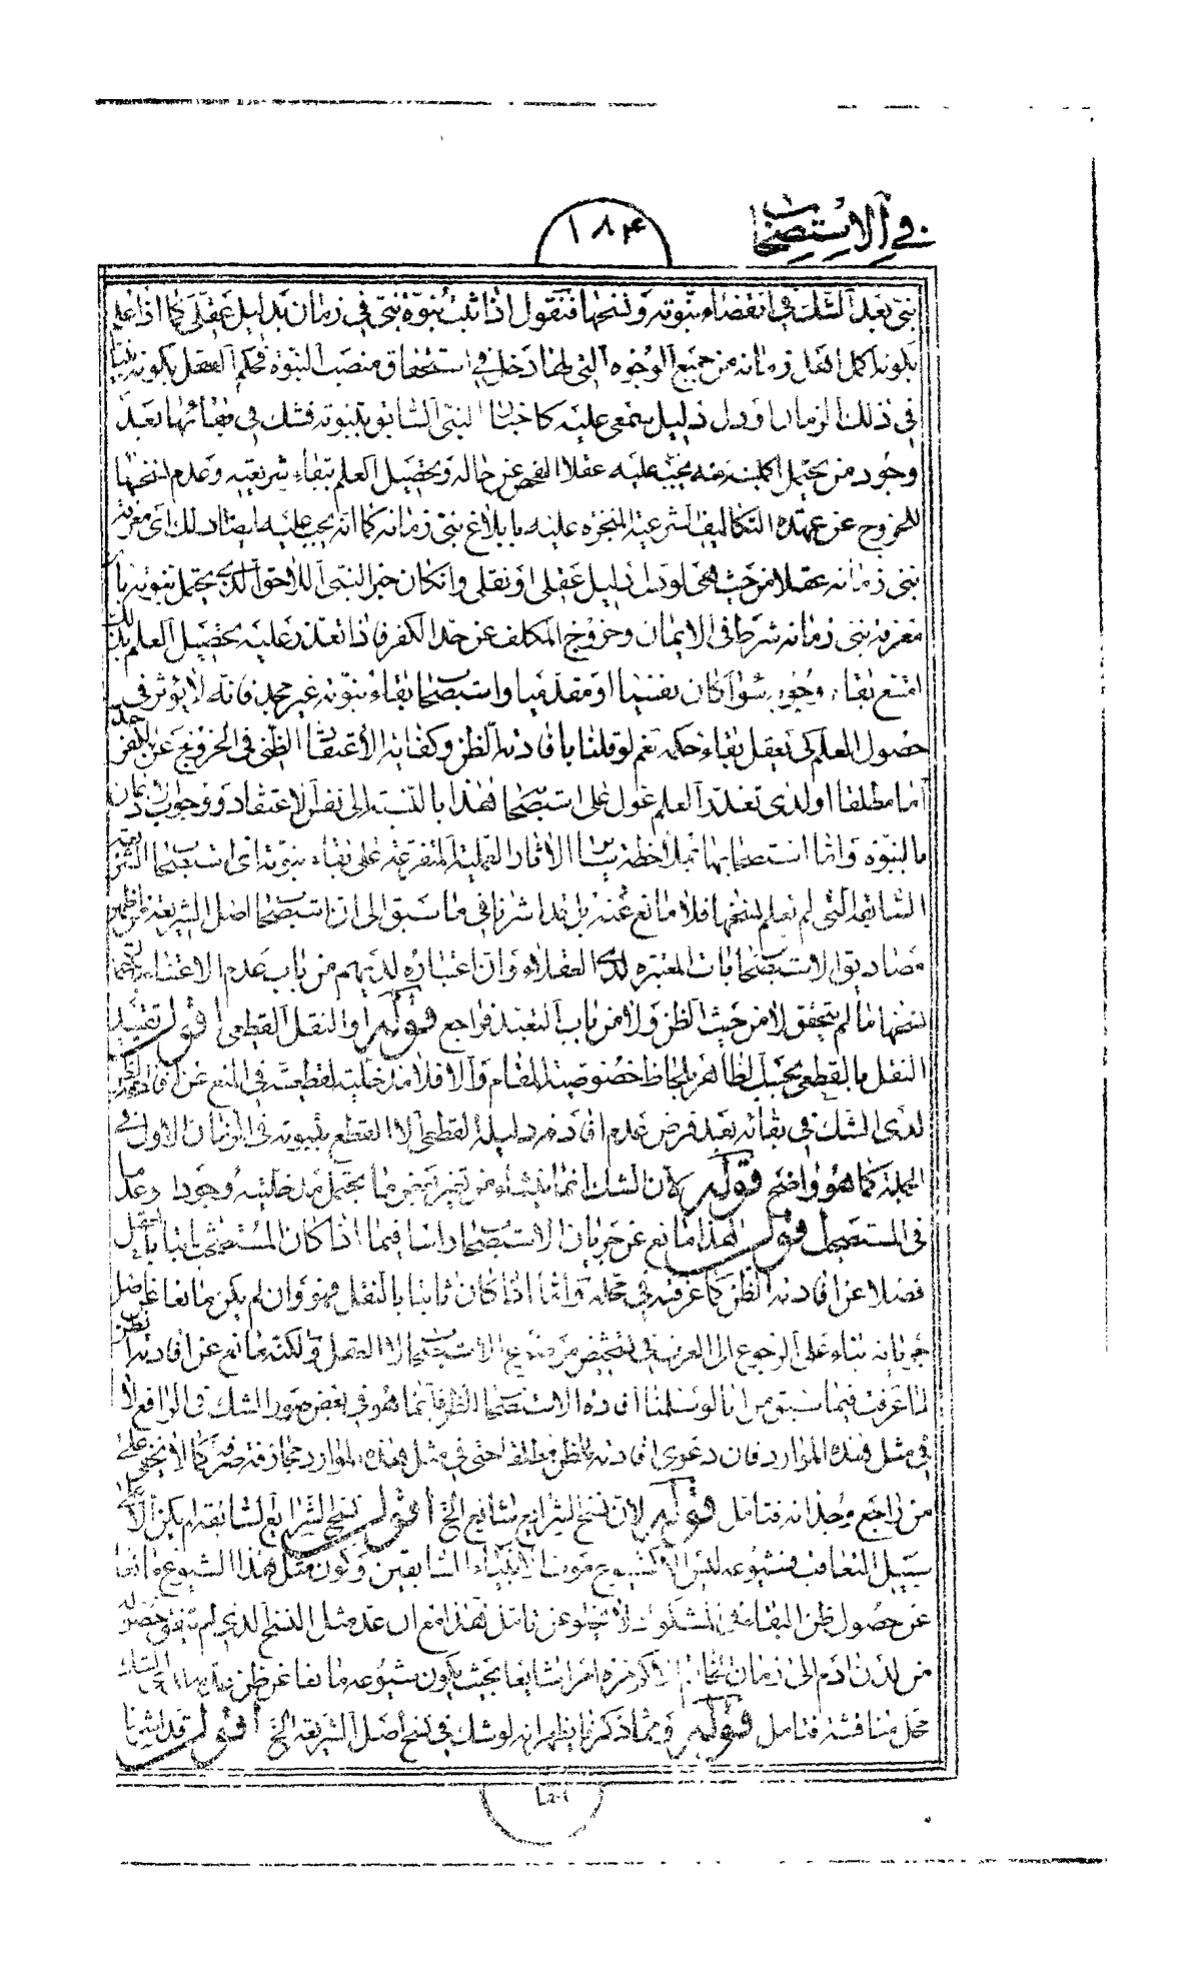 في الاستصحاب
١٨٤
نبي بعد الشك في انقضاء نبوته ونسخها فنقول اذا ثبت نبوة نبي في زمان بدليل عقلي كما اذا علم
بكونه اكمل اهل زمانه من جميع الوجوه التي لها دخل في استحقاق منصب النبوة فحكم العقل بكونه نبيا
في ذلك الزمان او دل دليل سمعي عليه كاخبار النبي السابق بنبوته فشك في بقائها بعد
وجود من يحتمل اكمليته منه يجب عليه عقلا الفحص عن حاله وتحصيل العلم ببقاء شريعته وعدم نسخها
للخروج عن عهدة التكاليف الشرعية المنجزة عليه بابلاغ نبي زمانه كما انه يجب عليه ايضا ذلك اي معرفة
نبي زمانه عقلا من حيث هي لو دل دليل عقلي او نقلي وان كان خبر النبي اللاحق الذي يحتمل نبوته بان
معرفة نبي زمانه شرط في الايمان وخروج المكلف عن حد الكفر فاذا تعذر عليه تحصيل العلم بذلك
امتنع بقاء وجوبه سواء كان نفسيا او مقدميا واستصحاب بقاء نبوته غير مجد فانه لا يؤثر في
حصول العلم كي يعقل بقاء حكمه نعم لو قلنا بافادته الظن وكفاية الاعتقاد الظني في الخروج عن حد الكفر
اما مطلقا او لدى تعذر العلم عول على استصحابها هذا بالنسبة الى نفس الاعتقاد ووجوب الايمان
بالنبوة واما استصحابها بملاحظة سائر الاثار العملية المتفرعة على بقاء نبوته اي استصحاب الشريعة
السابقة التي لم يعلم نسخها فلا مانع عنه بل قد اشرنا في ما سبق الى ان استصحاب اصل الشريعة من اظهر
مصاديق الاستصحابات المعتبرة لدى العقلاء وان اعتباره لديهم من باب عدم الاعتناء باحتمال
نسخها ما لم يتحقق لا من حيث الظن ولا من باب التعبد فراجع قوله او النقل القطعي اقول تقييد
النقل بالقطعي بحسب الظاهر بلحاظ خصوصية المقام والا فلا مدخلية لقطعيته في المنع عن افادة الظن
لدى الشك في بقائه بعد فرض عدم افادة دليله القطعي الا القطع بثبوته في الزمان الاول في
الجملة كما هو واضح قوله لان الشك انما ينشأ من تغير بعض ما يحتمل مدخليته وجودا وعدما
في المستصحب اقول هذا مانع عن جريان الاستصحاب راسا فيما اذا كان المستصحب ثابتا بالعقل
فضلا عن افادته الظن كما عرفته في محله واما اذا كان ثابتا بالنقل فهو وان لم يكن مانعا عن اصل
جريانه بناء على الرجوع الى العرف في تشخيص موضوع الاستصحاب لا العقل ولكنه مانع عن افادته الظن
لما عرفت فيما سبق من انا لو سلمنا افادة الاستصحاب الظن فانما هو في بعض صور الشك في الرافع لا
في مثل هذه الموارد فان دعوى افادته للظن مطلقا حتى في مثل هذه الموارد مجازفة صرفة كما لا يخفى على
من راجع وجدانه فتامل قوله لان نسخ الشرايع شايع الخ اقول نسخ الشرايع السابقة لم يكن الا على
سبيل التعاقب فشيوعه ليس الا كشيوع موت الانبياء السابقين وكون مثل هذا الشيوع مانعا
عن حصول ظن البقاء في المشكوك لا يخلو عن تامل هذا مع ان عد مثل النسخ الذي لم يتفق حصوله
من لدن ادم الى زمان الخاتم الا كم مرة امرا شايعا بحيث يكون شيوعه مانعا عن ظن
محل مناقشة فتامل قوله ومما ذكرنا يظهر انه لو شك في نسخ اصل الشريعة الخ اقول قد اشرنا